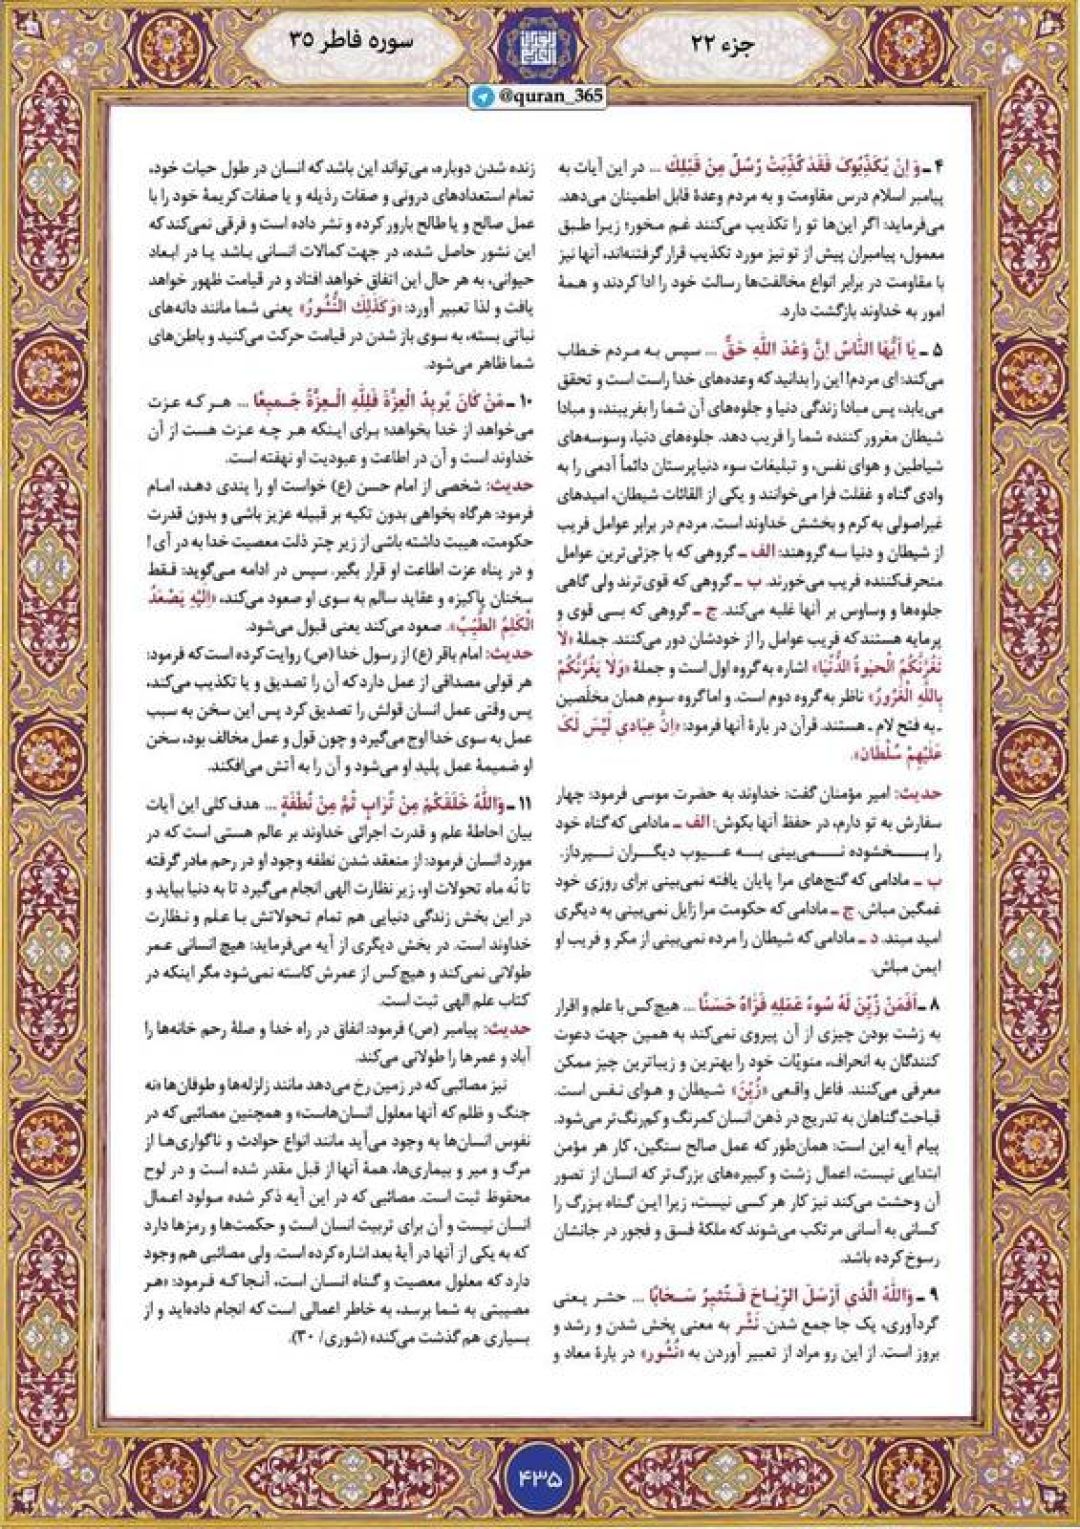 جزء ۲۲
سوره فاطر ۳۵
@quran_365
۴ ـ وَ اِنْ يُكَذِّبُوكَ فَقَدْ كُذِّبَتْ رُسُلٌ مِنْ قَبْلِكَ ... در این آیات به
پیامبر اسلام درس مقاومت و به مردم وعدهٔ قابل اطمینان می‌دهد.
می‌فرماید: اگر این‌ها تو را تکذیب می‌کنند غم مخور؛ زیرا طبق
معمول، پیامبران پیش از تو نیز مورد تکذیب قرار گرفتنه‌اند، آنها نیز
با مقاومت در برابر انواع مخالفت‌ها رسالت خود را ادا کردند و همهٔ
امور به خداوند بازگشت دارد.
۵ ـ يَا اَيُّهَا النَّاسُ اِنَّ وَعْدَ اللّٰهِ حَقٌّ ... سپس به مردم خطاب
می‌کند: ای مردم! این را بدانید که وعده‌های خدا راست است و تحقق
می‌یابد، پس مبادا زندگی دنیا و جلوه‌های آن شما را بفریبند، و مبادا
شیطان مغرور کننده شما را فریب دهد. جلوه‌های دنیا، وسوسه‌های
شیاطین و هوای نفس، و تبلیغات سوء دنیاپرستان دائماً آدمی را به
وادی گناه و غفلت فرا می‌خوانند و یکی از القائات شیطان، امیدهای
غیراصولی به کرم و بخشش خداوند است. مردم در برابر عوامل فریب
از شیطان و دنیا سه گروهند: الف ـ گروهی که با جزئی‌ترین عوامل
منحرف‌کننده فریب می‌خورند. ب ـ گروهی که قوی‌ترند ولی گاهی
جلوه‌ها و وساوس بر آنها غلبه می‌کند. ج ـ گروهی که بسی قوی و
پرمایه هستند که فریب عوامل را از خودشان دور می‌کنند. جملهٔ «لَا
تَغُرَّنَّكُمُ الْحَيٰوةُ الدُّنْيَا» اشاره به گروه اول است و جملهٔ «وَلَا يَغُرَّنَّكُمْ
بِاللّٰهِ الْغَرُورُ» ناظر به گروه دوم است. و اما گروه سوم همان مخلَصین
ـ به فتح لام ـ هستند. قرآن در بارهٔ آنها فرمود: «اِنَّ عِبَادِي لَيْسَ لَكَ
عَلَيْهِمْ سُلْطَانٌ».
حدیث: امیر مؤمنان گفت: خداوند به حضرت موسی فرمود: چهار
سفارش به تو دارم، در حفظ آنها بکوش: الف ـ مادامی که گناه خود
را بخشوده نمی‌بینی به عیوب دیگران نپرداز.
ب ـ مادامی که گنج‌های مرا پایان یافته نمی‌بینی برای روزی خود
غمگین مباش. ج ـ مادامی که حکومت مرا زایل نمی‌بینی به دیگری
امید مبند. د ـ مادامی که شیطان را مرده نمی‌بینی از مکر و فریب او
ایمن مباش.
۸ ـ اَفَمَنْ زُيِّنَ لَهُ سُوءُ عَمَلِهِ فَرَآهُ حَسَنًا ... هیچ‌کس با علم و اقرار
به زشت بودن چیزی از آن پیروی نمی‌کند به همین جهت دعوت
کنندگان به انحراف، منویّات خود را بهترین و زیباترین چیز ممکن
معرفی می‌کنند. فاعل واقعی «زُيِّنَ» شیطان و هوای نفس است.
قباحت گناهان به تدریج در ذهن انسان کمرنگ و کم‌رنگ‌تر می‌شود.
پیام آیه این است: همان‌طور که عمل صالح سنگین، کار هر مؤمن
ابتدایی نیست، اعمال زشت و کبیره‌های بزرگ‌تر که انسان از تصور
آن وحشت می‌کند نیز کار هر کسی نیست، زیرا این گناه بزرگ را
کسانی به آسانی مرتکب می‌شوند که ملکهٔ فسق و فجور در جانشان
رسوخ کرده باشد.
۹ ـ وَاللّٰهُ الَّذِي اَرْسَلَ الرِّيَاحَ فَتُثِيرُ سَحَابًا ... حشر یعنی
گردآوری، یک جا جمع شدن. نَشْر به معنی پخش شدن و رشد و
بروز است. از این رو مراد از تعبیر آوردن به «نُشُور» در بارهٔ معاد و
زنده شدن دوباره، می‌تواند این باشد که انسان در طول حیات خود،
تمام استعدادهای درونی و صفات رذیله و یا صفات کریمهٔ خود را با
عمل صالح و یا طالح بارور کرده و نشر داده است و فرقی نمی‌کند که
این نشور حاصل شده، در جهت کمالات انسانی باشد یا در ابعاد
حیوانی، به هر حال این اتفاق خواهد افتاد و در قیامت ظهور خواهد
یافت و لذا تعبیر آورد: «وَكَذٰلِكَ النُّشُورُ» یعنی شما مانند دانه‌های
نباتی بسته، به سوی باز شدن در قیامت حرکت می‌کنید و باطن‌های
شما ظاهر می‌شود.
۱۰ ـ مَنْ كَانَ يُرِيدُ الْعِزَّةَ فَلِلّٰهِ الْعِزَّةُ جَمِيعًا ... هر که عزت
می‌خواهد از خدا بخواهد؛ برای اینکه هر چه عزت هست از آن
خداوند است و آن در اطاعت و عبودیت او نهفته است.
حدیث: شخصی از امام حسن (ع) خواست او را پندی دهد، امام
فرمود: هرگاه بخواهی بدون تکیه بر قبیله عزیز باشی و بدون قدرت
حکومت، هیبت داشته باشی از زیر چتر ذلت معصیت خدا به در آی !
و در پناه عزت اطاعت او قرار بگیر. سپس در ادامه می‌گوید: فقط
سخنان پاکیزه و عقاید سالم به سوی او صعود می‌کند، «اِلَيْهِ يَصْعَدُ
الْكَلِمُ الطَّيِّبُ». صعود می‌کند یعنی قبول می‌شود.
حدیث: امام باقر (ع) از رسول خدا (ص) روایت کرده است که فرمود:
هر قولی مصداقی از عمل دارد که آن را تصدیق و یا تکذیب می‌کند،
پس وقتی عمل انسان قولش را تصدیق کرد پس این سخن به سبب
عمل به سوی خدا اوج می‌گیرد و چون قول و عمل مخالف بود، سخن
او ضمیمهٔ عمل پلید او می‌شود و آن را به آتش می‌افکند.
۱۱ ـ وَاللّٰهُ خَلَقَكُمْ مِنْ تُرَابٍ ثُمَّ مِنْ نُطْفَةٍ ... هدف کلی این آیات
بیان احاطهٔ علم و قدرت اجرائی خداوند بر عالم هستی است که در
مورد انسان فرمود: از منعقد شدن نطفه وجود او در رحم مادر گرفته
تا نُه ماه تحولات او، زیر نظارت الهی انجام می‌گیرد تا به دنیا بیاید و
در این بخش زندگی دنیایی هم تمام تحولاتش با علم و نظارت
خداوند است. در بخش دیگری از آیه می‌فرماید: هیچ انسانی عمر
طولانی نمی‌کند و هیچ‌کس از عمرش کاسته نمی‌شود مگر اینکه در
کتاب علم الهی ثبت است.
حدیث: پیامبر (ص) فرمود: انفاق در راه خدا و صلهٔ رحم خانه‌ها را
آباد و عمرها را طولانی می‌کند.
نیز مصائبی که در زمین رخ می‌دهد مانند زلزله‌ها و طوفان‌ها «نه
جنگ و ظلم که آنها معلول انسان‌هاست» و همچنین مصائبی که در
نفوس انسان‌ها به وجود می‌آید مانند انواع حوادث و ناگواری‌ها از
مرگ و میر و بیماری‌ها، همهٔ آنها از قبل مقدر شده است و در لوح
محفوظ ثبت است. مصائبی که در این آیه ذکر شده مولود اعمال
انسان نیست و آن برای تربیت انسان است و حکمت‌ها و رمزها دارد
که به یکی از آنها در آیهٔ بعد اشاره کرده است. ولی مصائبی هم وجود
دارد که معلول معصیت و گناه انسان است، آنجا که فرمود: «هر
مصیبتی به شما برسد، به خاطر اعمالی است که انجام داده‌اید و از
بسیاری هم گذشت می‌کند» (شوری/ ۳۰).
۴۳۵